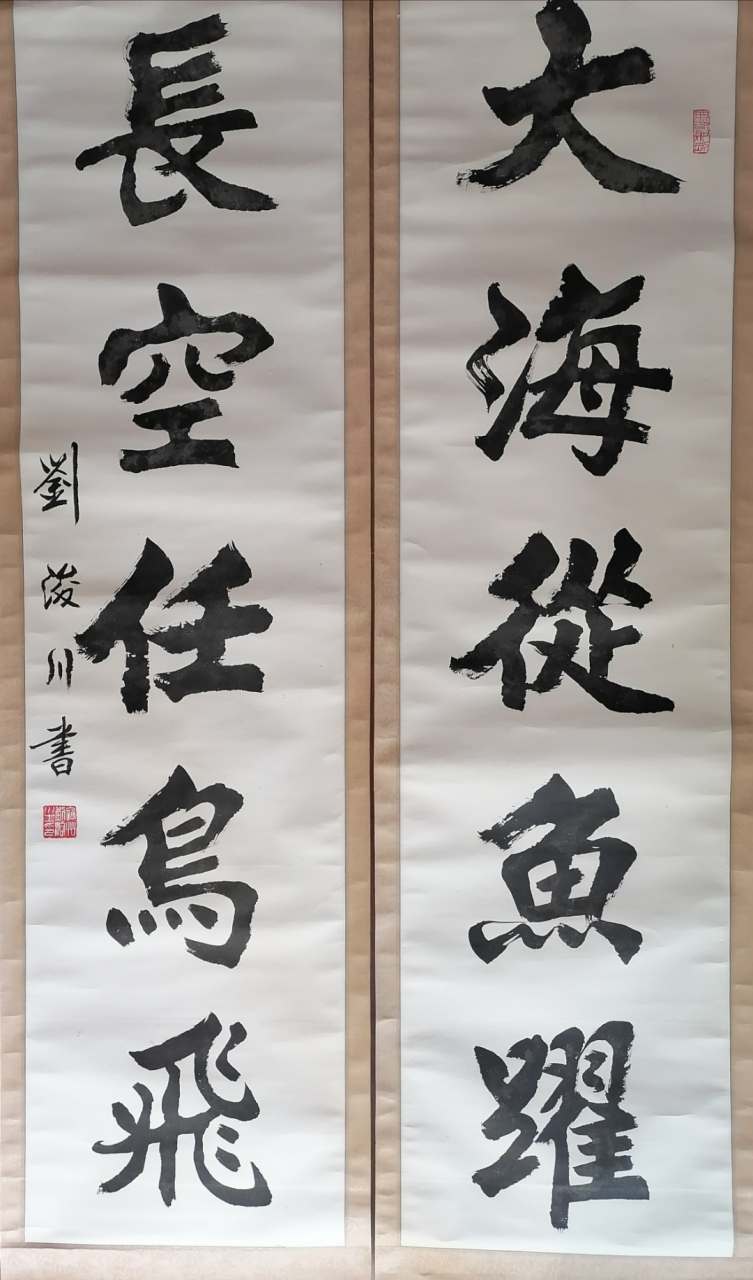 大海從魚躍
長空任鳥飛
劉浚川書